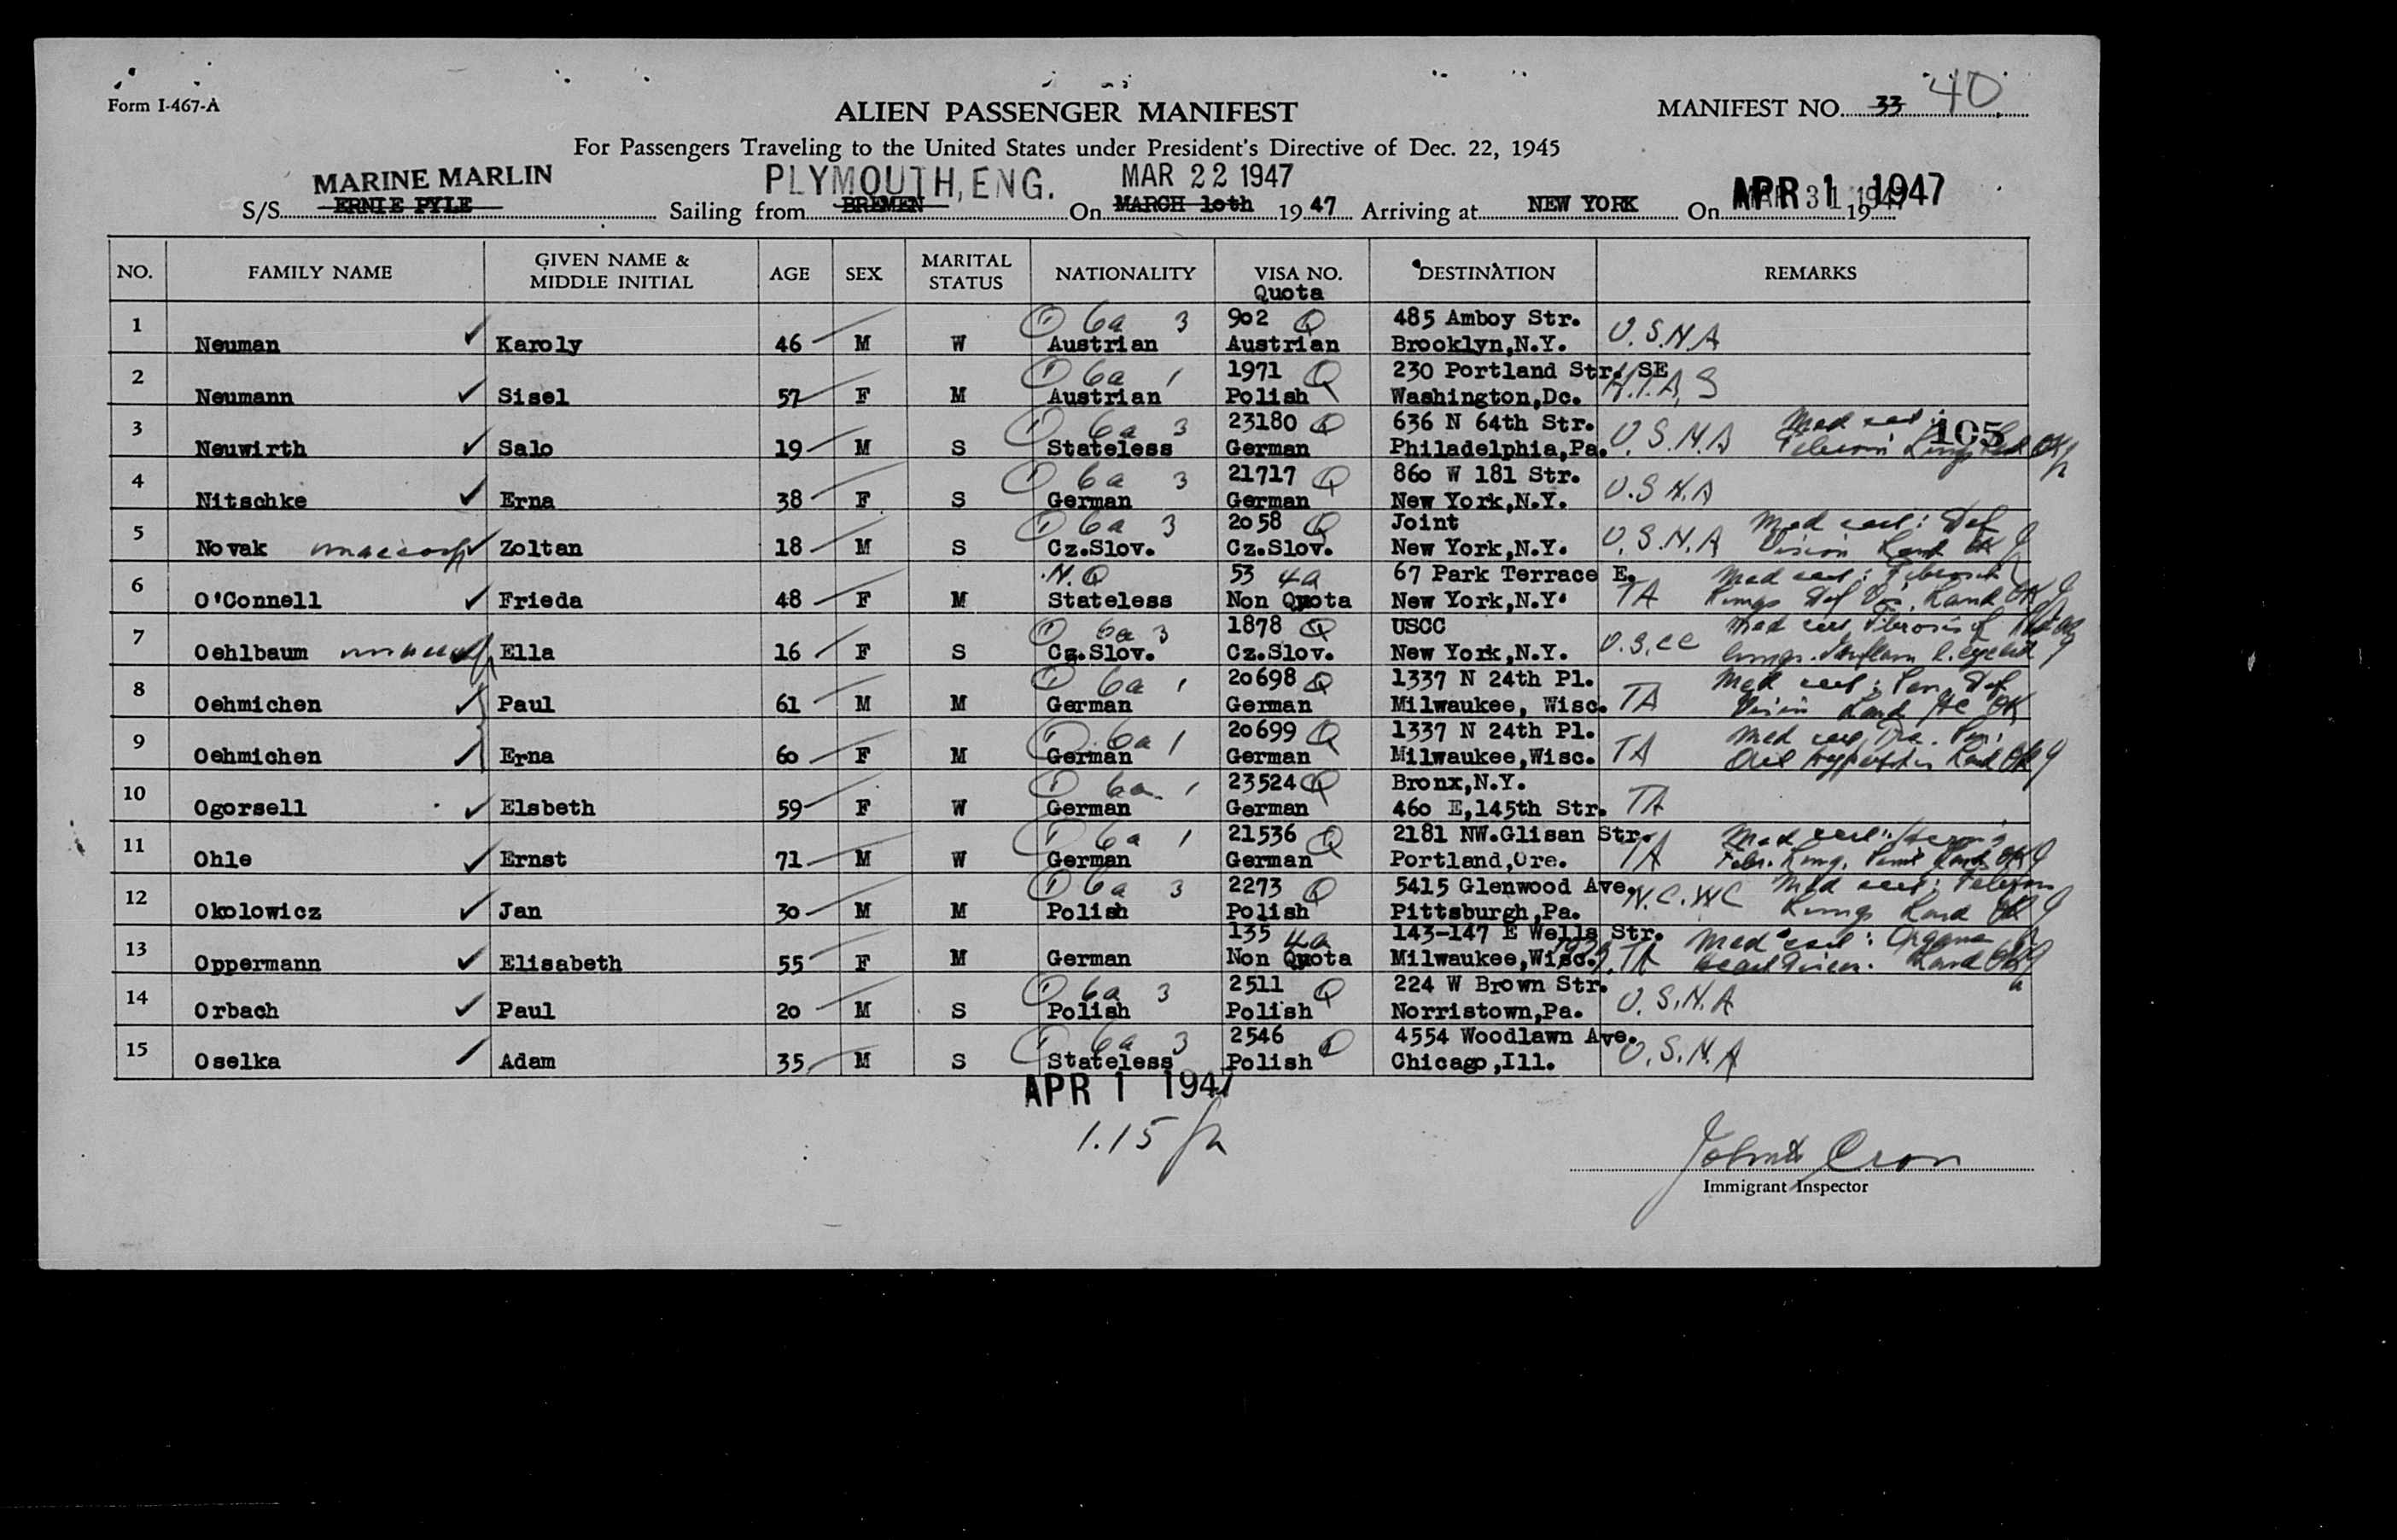 Form I-467-A
ALIEN PASSENGER MANIFEST
MANIFEST NO. 33 40
For Passengers Traveling to the United States under President's Directive of Dec. 22, 1945
MARINE MARLIN PLYMOUTH, ENG. MAR 22 1947 APR 1 1947
S/S ERNIE PYLE Sailing from BREMEN On MARCH 10th 19 47 Arriving at NEW YORK On MAR 31 1947 19
NO. FAMILY NAME GIVEN NAME & MIDDLE INITIAL AGE SEX MARITAL STATUS NATIONALITY VISA NO. Quota DESTINATION REMARKS
1 6a 3 902 Q 485 Amboy Str.
Neuman Karoly 46 M W Austrian Austrian Brooklyn,N.Y. U.S.N.A
2 6a 1 1971 Q 230 Portland Str. SE
Neumann Sisel 57 F M Austrian Polish Washington,Dc. H.I.A.S
3 6a 3 23180 Q 636 N 64th Str. Med cert: 105
Neuwirth Salo 19 M S Stateless German Philadelphia,Pa. U.S.N.A
4 6a 3 21717 Q 860 W 181 Str.
Nitschke Erna 38 F S German German New York,N.Y. U.S.N.A
5 6a 3 2058 Q Joint Med cert: Def
Novak Zoltan 18 M S Cz.Slov. Cz.Slov. New York,N.Y. U.S.N.A Vision Land OK
6 N.Q 53 4a 67 Park Terrace E. Med cert: Fibrosis
O'Connell Frieda 48 F M Stateless Non Quota New York,N.Y. TA Lungs Def Vis. Land OK
7 6a 3 1878 Q USCC Med cert Fibrosis of
Oehlbaum Ella 16 F S Cz.Slov. Cz.Slov. New York,N.Y. U.S.CC lungs. eyelid
8 6a 1 20698 Q 1337 N 24th Pl. Med cert: Sen. Def
Oehmichen Paul 61 M M German German Milwaukee, Wisc. TA Vision Land OK
9 6a 1 20699 Q 1337 N 24th Pl. Med cert
Oehmichen Erna 60 F M German German Milwaukee,Wisc. TA Land OK
10 6a 1 23524 Q Bronx,N.Y.
Ogorsell Elsbeth 59 F W German German 460 E,145th Str. TA
11 6a 1 21536 Q 2181 NW.Glisan Str. Med cert: Hernia
Ohle Ernst 71 M W German German Portland,Ore. TA Land OK
12 6a 3 2273 Q 5415 Glenwood Ave. Med cert: Fibrosis
Okolowicz Jan 30 M M Polish Polish Pittsburgh,Pa. N.C.WC Lungs Land OK
13 135 4a 143-147 E Wells Str. Med cert: Organic
Oppermann Elisabeth 55 F M German Non Quota Milwaukee,Wisc. TA Land OK
14 6a 3 2511 Q 224 W Brown Str.
Orbach Paul 20 M S Polish Polish Norristown,Pa. U.S.N.A
15 6a 3 2546 Q 4554 Woodlawn Ave.
Oselka Adam 35 M S Stateless Polish Chicago,Ill. U.S.N.A
APR 1 1947
1.15
Immigrant Inspector